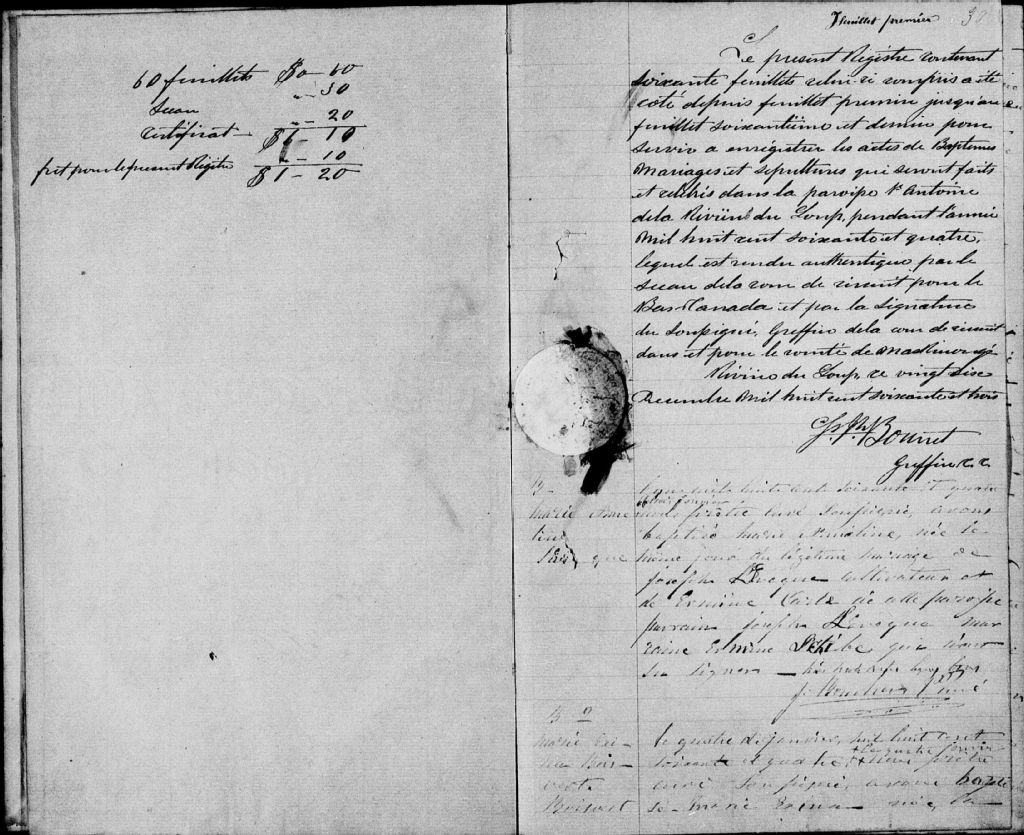 60 feuillets $0-60
" - 30
Sceau
" - 20
Certificat
$1 10
" - 10
fait pour le present Régitre
$1-20
feuillet premier
Le present Régistre contenant
soixante feuillets celui ci compris a été
coté depuis feuillet premier jusqu'au
feuillet soixantième et dernier pour
servir a enregistrer les actes de Baptemes
Mariages et sépultures qui seront faits
et célébrés dans la paroisse St Antoine
de la Rivière du Loup, pendant l'année
Mil huit cent soixante et quatre,
lequel est rendu authentique par le
Sceau de la cour de circuit pour le
Bas-Canada et par la signature
du soussigné, Greffier de la cour de circuit
dans et pour le comté de Maskinongé
Rivière du Loup, ce vingt six
Decembre Mil huit cent soixante et trois
Greffier C. C.
B
Marie
huit cent soixante et quatre
nous prêtre curé soussigné, avons
baptisé Marie née le
même jour du légitime mariage de
Joseph Levêque cultivateur et
de de cette paroisse
parrain Joseph Levêque mar
raine qui n'ont
su signer
curé
B
Marie
le quatre de janvier, mil huit cent
soixante et quatre, nous prêtre
curé soussigné, avons bapti
sé Marie née, la
Boisvert